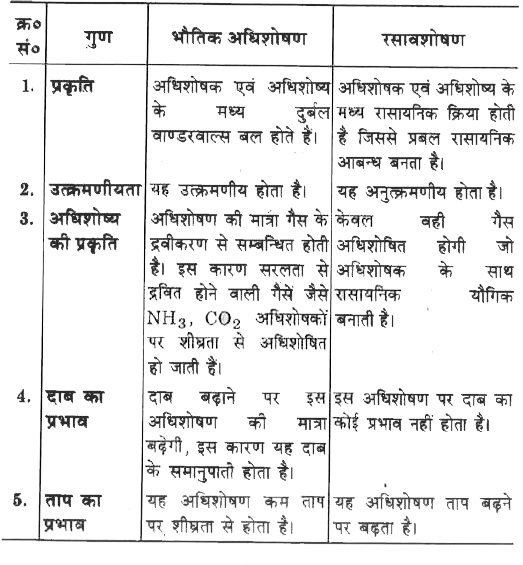 क्र०
सं०
गुण
भौतिक अधिशोषण
रसावशोषण
1.
प्रकृति
अधिशोषक एवं अधिशोष्य
के मध्य दुर्बल
वाण्डरवाल्स बल होते हैं।
अधिशोषक एवं अधिशोष्य के
मध्य रासायनिक क्रिया होती
है जिससे प्रबल रासायनिक
आबन्ध बनता है।
2.
उत्क्रमणीयता
यह उत्क्रमणीय होता है।
यह अनुत्क्रमणीय होता है।
3.
अधिशोष्य
की प्रकृति
अधिशोषण की मात्रा गैस के
द्रवीकरण से सम्बन्धित होती
है। इस कारण सरलता से
द्रवित होने वाली गैसें जैसे
NH₃, CO₂ अधिशोषकों
पर शीघ्रता से अधिशोषित
हो जाती हैं।
केवल वही गैस
अधिशोषित होगी जो
अधिशोषक के साथ
रासायनिक यौगिक
बनाती है।
4.
दाब का
प्रभाव
दाब बढ़ाने पर इस
अधिशोषण की मात्रा
बढ़ेगी, इस कारण यह दाब
के समानुपाती होता है।
इस अधिशोषण पर दाब का
कोई प्रभाव नहीं होता है।
5.
ताप का
प्रभाव
यह अधिशोषण कम ताप
पर शीघ्रता से होता है।
यह अधिशोषण ताप बढ़ने
पर बढ़ता है।